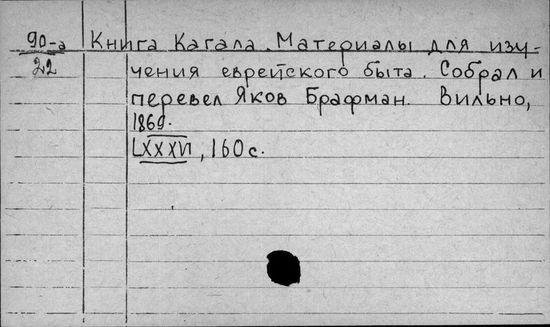 90-а Книга Кагала. Материалы для изу-
22 чения еврейского быта. Собрал и
перевел Яков Брафман. Вильно,
1869.
LXXXVI, 160 с.